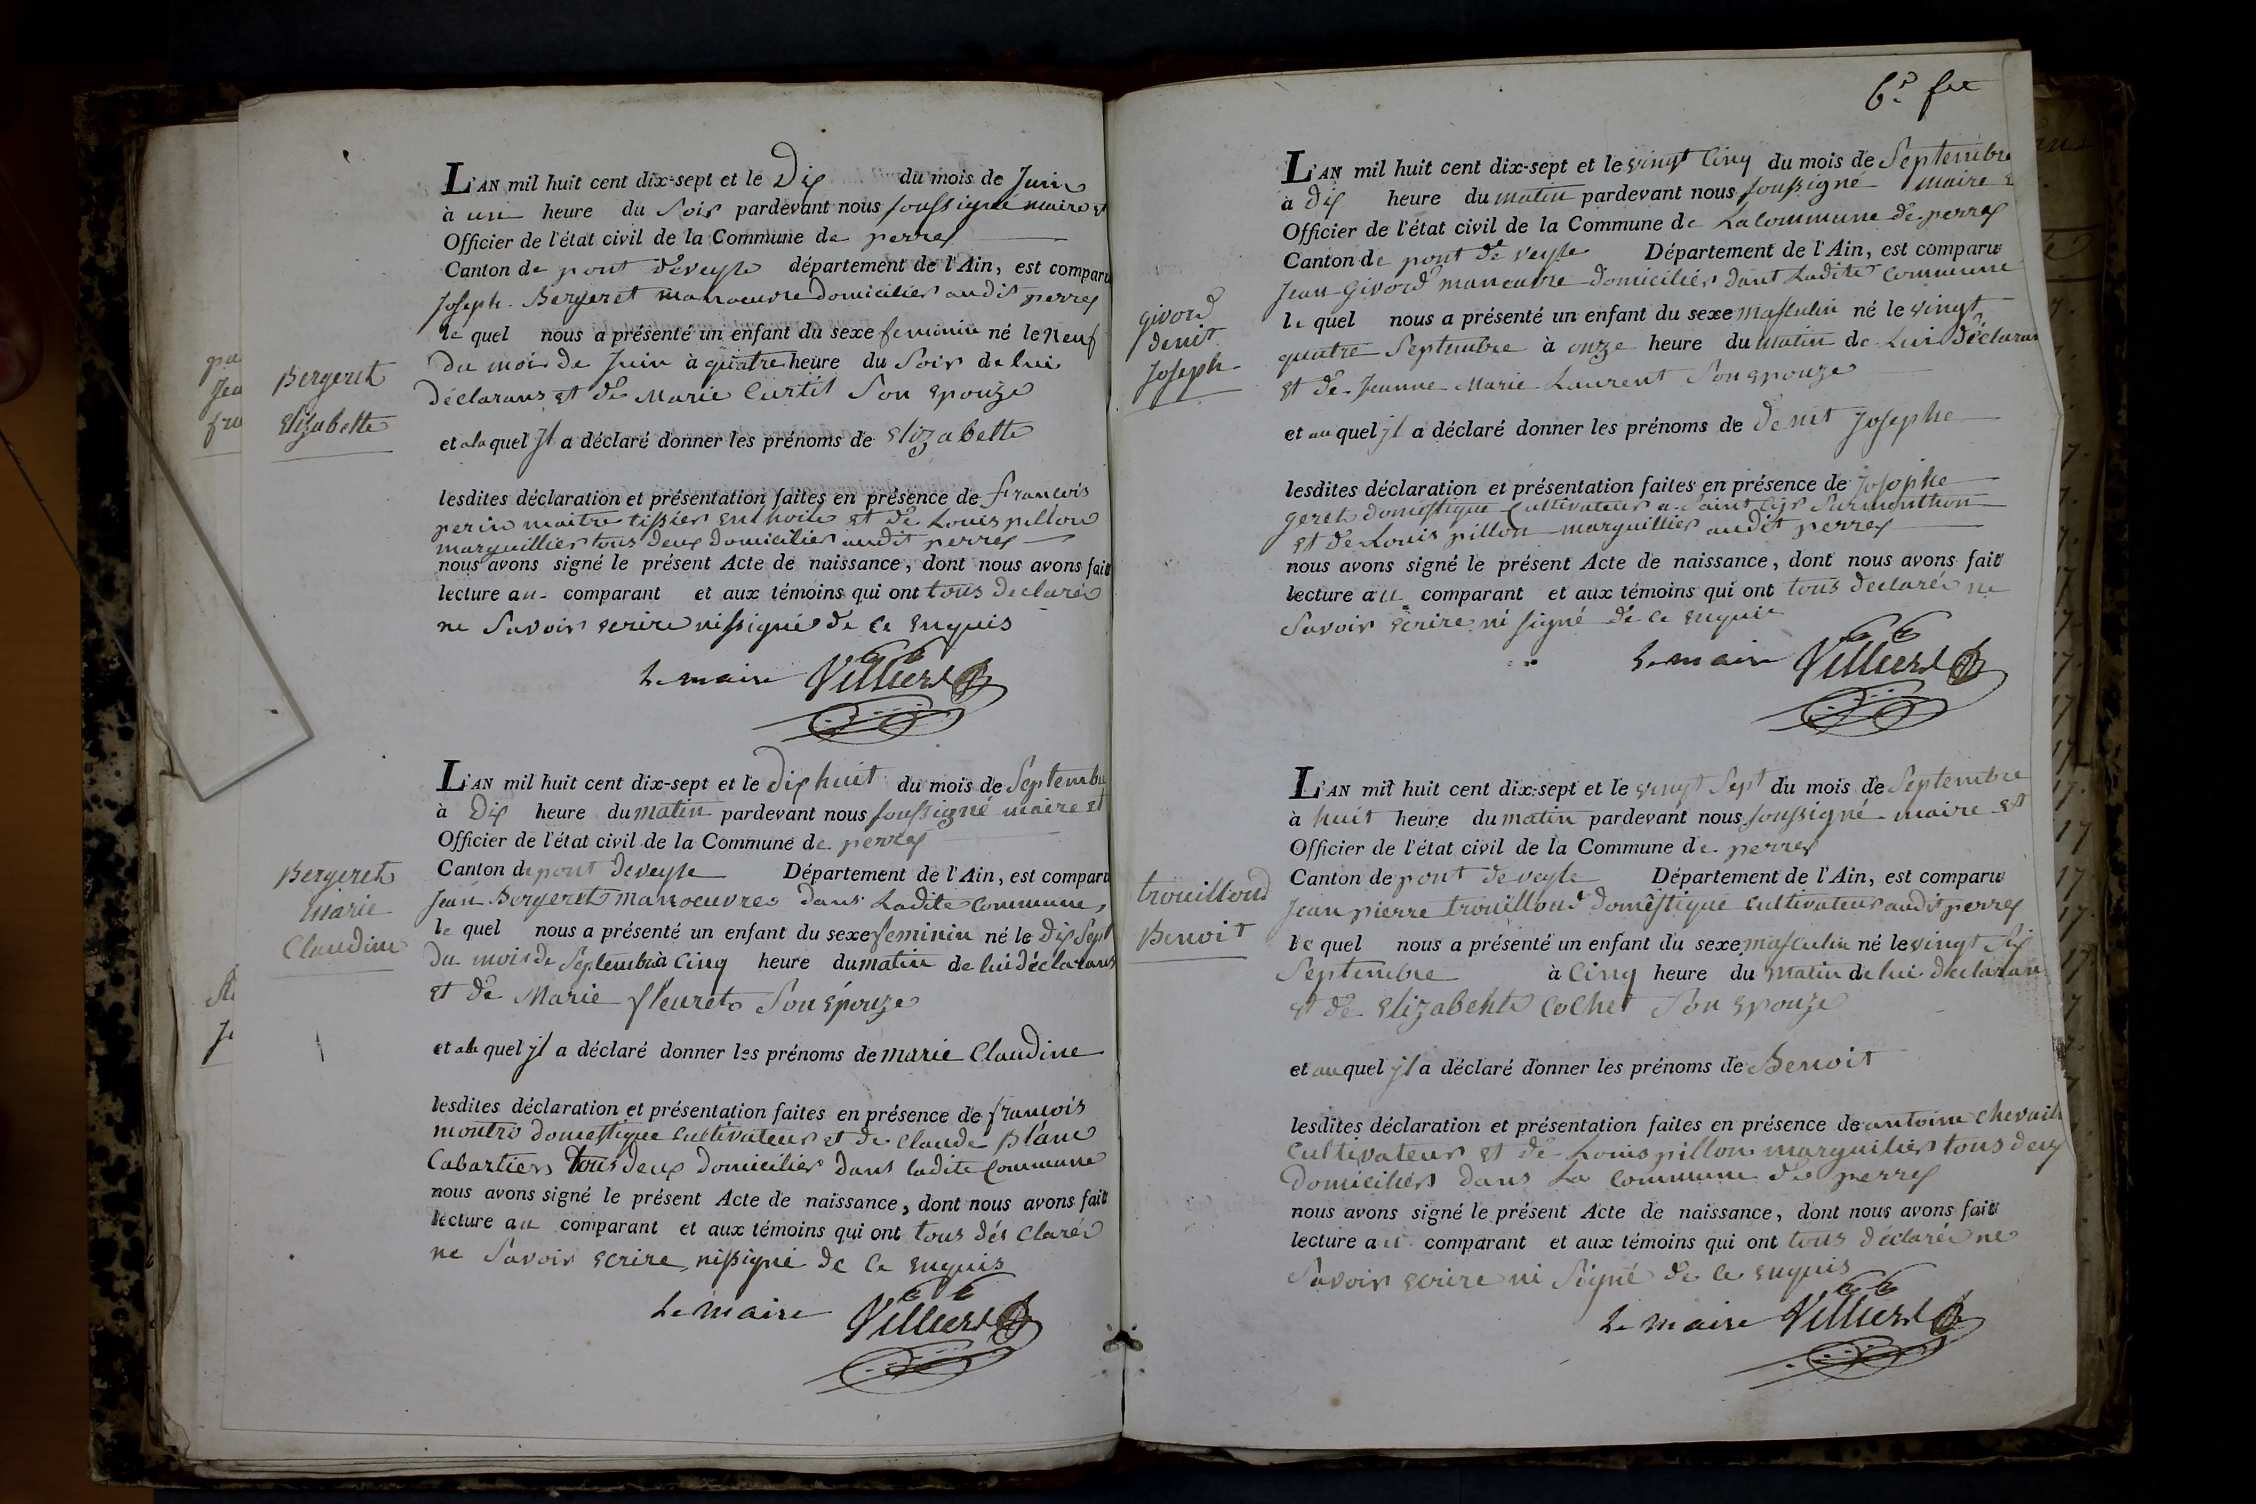 L'AN mil huit cent dix-sept et le Dix du mois de Juin
à une heure du Soir pardevant nous soussigné maire et
Officier de l'état civil de la Commune de perrex
Canton de pont deveyle département de l'Ain, est comparu
Joseph Bergeret manoeuvre domicilier audit perrex
le quel nous a présenté un enfant du sexe feminin né le neuf
Bergeret
Elizabette
Du mois de Juin à quatre heure du Soir de lui
déclarans et de Marie Curtil Son Epouze
et a la quel Jl a déclaré donner les prénoms de Elizabette
lesdites déclaration et présentation faites en présence de françois
perin maitre tissier en thoile et de Louis pillon
marguillier tous deux domicilier audit perrex
nous avons signé le présent Acte de naissance, dont nous avons fait
lecture au comparant et aux témoins qui ont tous declarés
ne Savoir ecrire ni signé de ce enquis
Le maire Villierd
L'AN mil huit cent dix-sept et le Dix huit du mois de Septembre
à Dix heure du matin pardevant nous soussigné maire et
Officier de l'état civil de la Commune de perrex
Bergeret
Marie
Claudine
Canton de pont deveyle Département de l'Ain, est comparu
Jean Bergeret manoeuvre dans Ladite commune,
le quel nous a présenté un enfant du sexe feminin né le Dix Sept
Du mois de Septembre à Cinq heure du matin de lui déclarans
et de Marie fleuret Son Epouze
et a la quel Jl a déclaré donner les prénoms de marie Claudine
lesdites déclaration et présentation faites en présence de françois
montro domestique cultivateur et de Claude Blanc
Cabartier tous deux domicilier dans ladite Commune
nous avons signé le présent Acte de naissance, dont nous avons fait
lecture au comparant et aux témoins qui ont tous dés clarés
ne Savoir ecrire, ni signé de ce enquis
Le maire Villierd
6e. fet
L'AN mil huit cent dix-sept et le vingt Cinq du mois de Septembre
à Dix heure du matin pardevant nous soussigné maire et
Officier de l'état civil de la Commune de La Commune de perrex
Canton de pont de veyle Département de l'Ain, est comparu
Jean Givord maneuvre domicilier dans Ladite Commune
Givord
denit
Joseph
le quel nous a présenté un enfant du sexe masculin né le vingt
quatre Septembre à onze heure du matin de Lui Déclarans
et de Jeanne Marie Laurent Son epouze
et au quel jl a déclaré donner les prénoms de denit Josephe
lesdites déclaration et présentation faites en présence de Josephe
geret domestique Cultivateur a Saint Cyr Surmonthon
et de Louis pillon marguillier audit perrex
nous avons signé le présent Acte de naissance, dont nous avons fait
lecture au comparant et aux témoins qui ont tous declarés ne
Savoir ecrire ni signé de ce enquis
Le maire Villierd
L'AN mil huit cent dix-sept et le vingt Sept du mois de Septembre
à huit heure du matin pardevant nous soussigné maire et
Officier de l'état civil de la Commune de perrex
trouilloud
Benoit
Canton de pont de veyle Département de l'Ain, est comparu
Jean pierre trouilloud domestique cultivateur audit perrex
le quel nous a présenté un enfant du sexe masculin né le vingt Six
Septembre à Cinq heure du matin de lui declarans
et de Elizabehte Cochet Son Epouze
et au quel jl a déclaré donner les prénoms de Benoit
lesdites déclaration et présentation faites en présence de antoine
Cultivateur et de Louis pillon marguilier tous deux
domicilier dans La Commune de perrex
nous avons signé le présent Acte de naissance, dont nous avons fait
lecture au comparant et aux témoins qui ont tous déclarés ne
Savoir ecrire ni Signé de ce enquis
Le maire Villierd